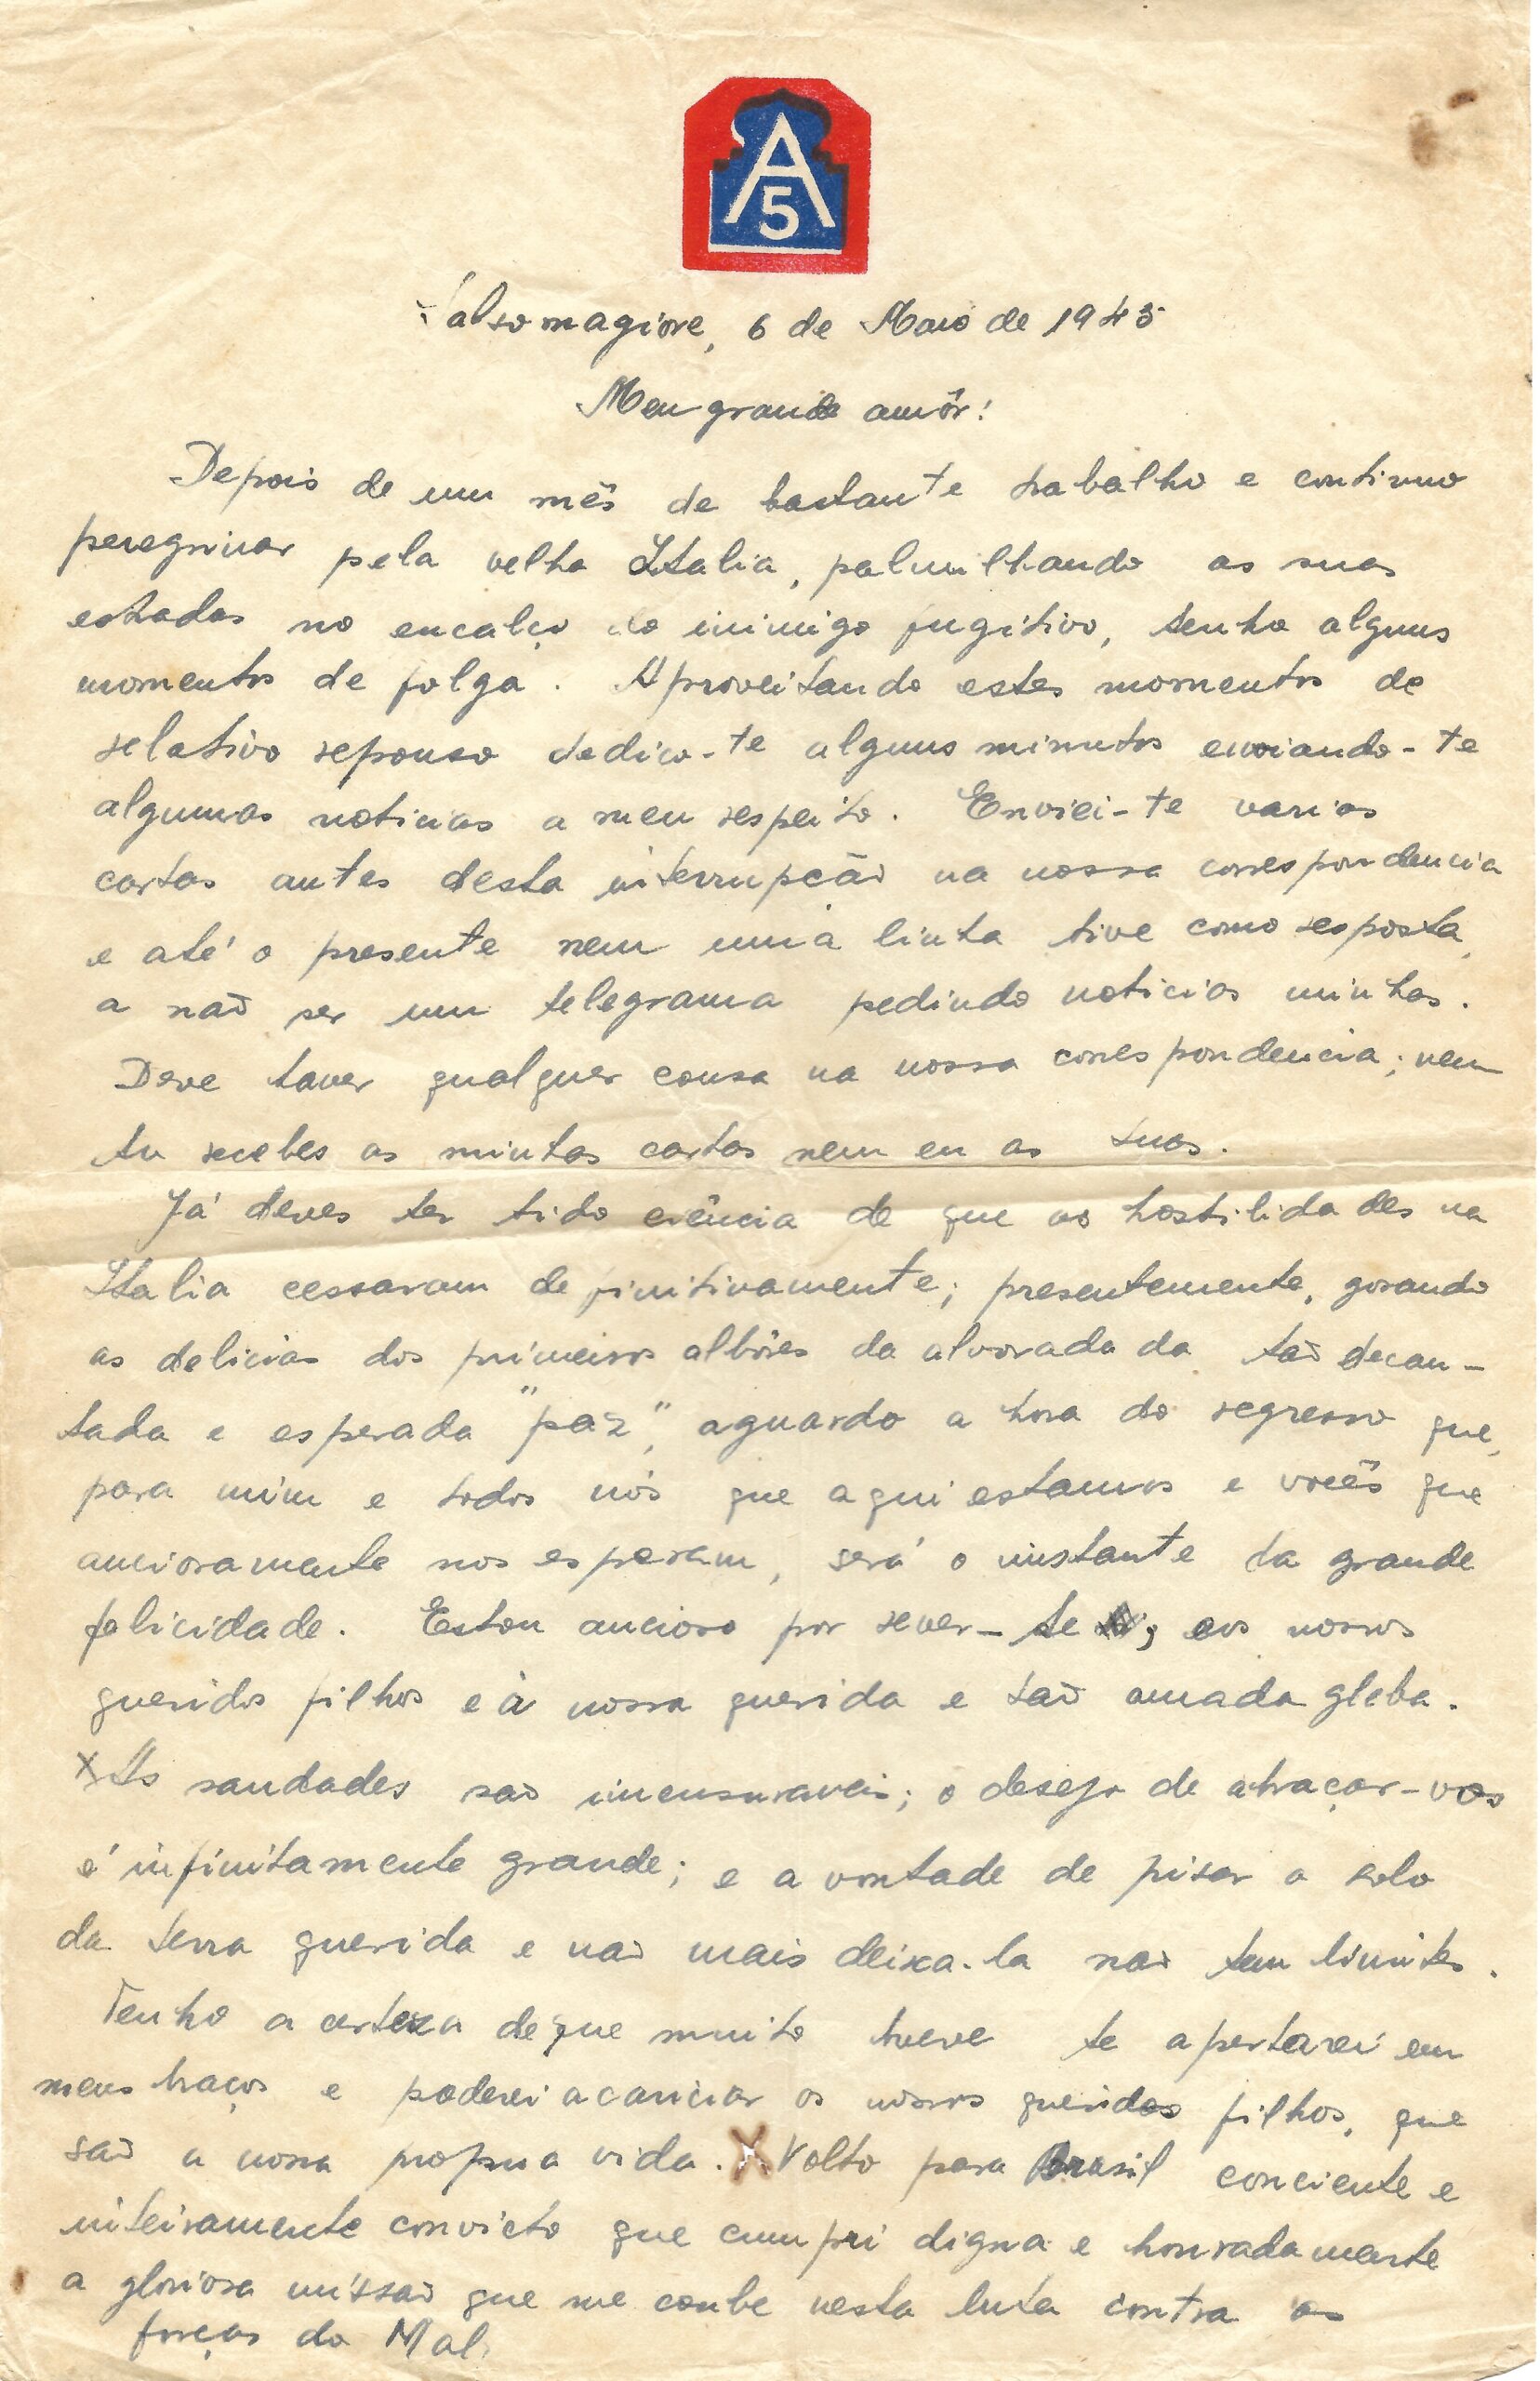 A
5
Salsomagiore, 6 de Maio de 1945
Meu grande amôr!
Depois de um mês de bastante trabalho e continuo
peregrinar pela velha Italia, palmilhando as suas
estradas no encalço do inimigo fugitivo, tenho alguns
momentos de folga. Aproveitando estes momentos de
relativo repouso dedico-te alguns minutos enviando-te
algumas noticias a meu respeito. Enviei-te varias
cartas antes desta interrupção na nossa correspondencia
e até o presente nem uma linha tive como resposta,
a não ser um telegrama pedindo noticias minhas.
Deve haver qualquer cousa na nossa correspondencia; nem
tu recebes as minhas cartas nem eu as tuas.
Já deves ter tido ciência de que as hostilidades na
Italia cessaram definitivamente; presentemente, gosando
as delicias dos primeiros albôres da alvorada da tão decan-
tada e esperada "paz", aguardo a hora do regresso que,
para mim e todos nós que aqui estamos e vocês que
anciosamente nos esperam, será o instante da grande
felicidade. Estou ancioso por rever-te, aos nossos
queridos filhos e à nossa querida e tão amada gleba.
X As saudades são imensuraveis; o desejo de abraçar-vos
é infinitamente grande; e a vontade de pisar o solo
da terra querida e não mais deixa-la não tem limites.
Tenho a certeza de que muito breve te apertarei em
meus braços e poderei acariciar os nossos queridos filhos, que
são a nossa propria vida. X Volto para Brasil conciente e
inteiramente convicto que cumpri digna e honradamente
a gloriosa missão que me coube nesta luta contra as
forças do Mal.